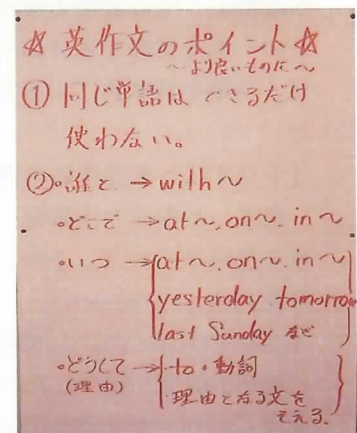 ☆ 英作文のポイント ☆
～より良いものに～
① 同じ単語は できるだけ
使わない。
②・誰と → with～
・どこで → at～, on～, in～
・いつ → at～, on～, in～
yesterday tomorrow
last Sunday など
・どうして → ・to・動詞
(理由) ・理由となる文を
そえる。